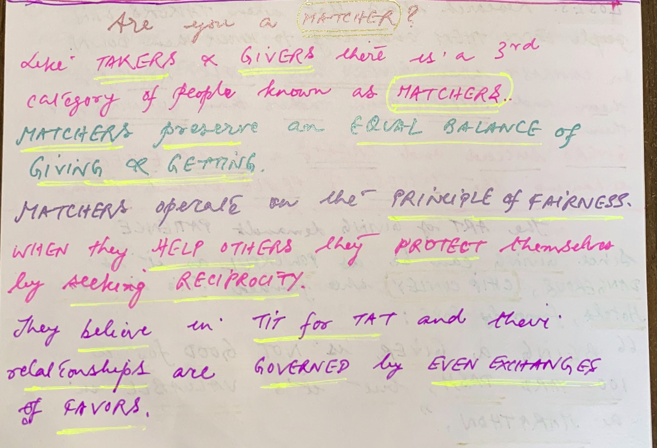 Are you a MATCHER?
Like TAKERS & GIVERS there is a 3rd
category of people known as MATCHERS.
MATCHERS preserve an EQUAL BALANCE of
GIVING & GETTING.
MATCHERS operate on the PRINCIPLE of FAIRNESS.
WHEN they HELP OTHERS they PROTECT themselves
by seeking RECIPROCITY.
They believe in TIT for TAT and their
relationships are GOVERNED by EVEN EXCHANGES
of FAVORS.